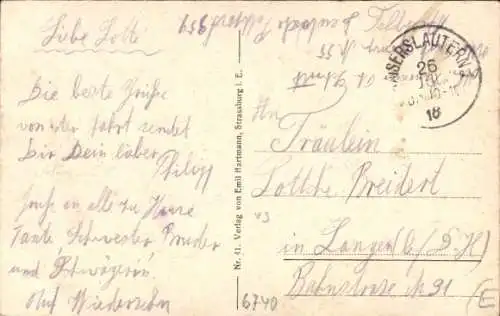 Liebe Lotte
Die beste Grüße
von der Fahrt sendet
Dir Dein lieber
Philipp
Gruß an alle zu Hause
Tante, Schwester Bruder
und Schwägerin.
Auf Wiedersehn
Nr. 41. Verlag von Emil Hartmann, Strassburg i. E.
KAISERSLAUTERN
26
18
An
Fräulein
Lottche Breidert
in Langen b/D. H)
Bahnstrase № 91
6740
E